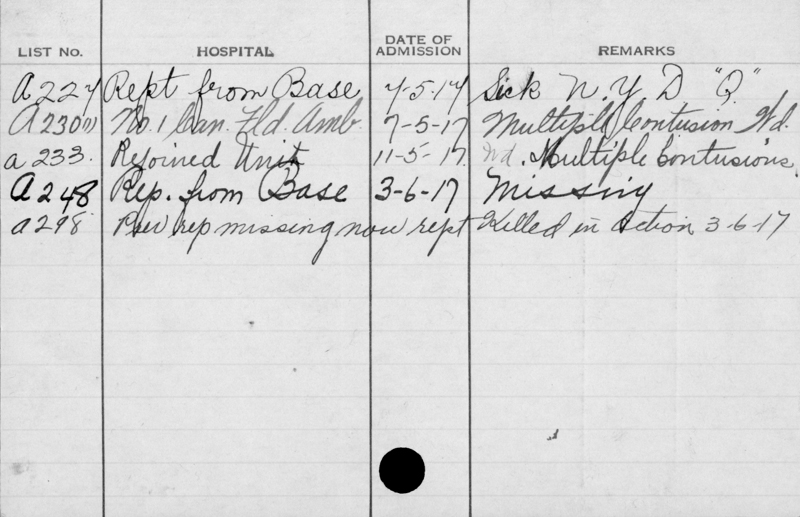 LIST No. HOSPITAL DATE OF ADMISSION REMARKS
A 227 Rept from Base 7-5-17 Sick N.Y.D "Q"
A 230(1) No. 1 Can. Fld. Amb. 7-5-17 Multiple Contusion Wd.
a 233. Rejoined Unit 11-5-17. Wd. Multiple Contusions.
A 248 Rep. from Base 3-6-17 Missing
a 298 Prev rep missing now rept Killed in Action 3-6-17